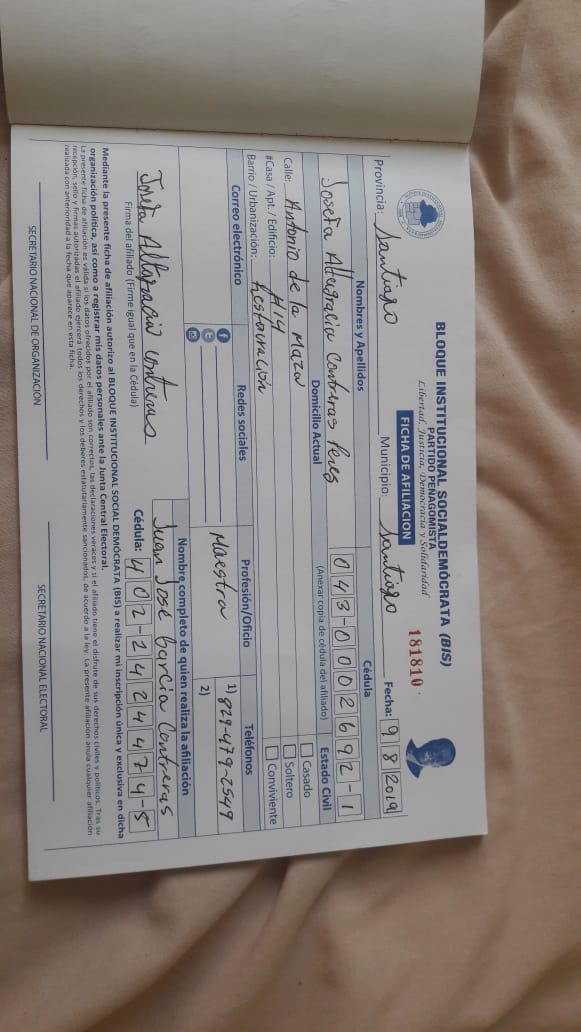 BLOQUE INSTITUCIONAL SOCIALDEMÓCRATA (BIS)
PARTIDO PEÑAGOMISTA
Libertad, Justicia, Democracia y Solidaridad
FICHA DE AFILIACION
181810
Provincia: Santiago Municipio: Santiago Fecha: 9 8 2019
Nombres y Apellidos Cédula
Josefa Altagracia Contreras Perez 043-0002692-1
Domicilio Actual (Anexar copia de cédula del afiliado) Estado Civil
Calle: Antonio de la Maza Casado
#Casa / Apt. / Edificio: #14 Soltero
Barrio / Urbanización: Restauración Conviviente
Correo electrónico Redes sociales Profesión/Oficio Teléfonos
Maestra 1) 829-479-2549
2)
Nombre completo de quien realiza la afiliación
Josefa Altagracia Contreras Juan José García Contreras
Firma del afiliado (Firme igual que en la Cédula) Cédula: 402-2424474-5
Mediante la presente ficha de afiliación autorizo al BLOQUE INSTITUCIONAL SOCIAL DEMÓCRATA (BIS) a realizar mi inscripción única y exclusiva en dicha
organización política, así como a registrar mis datos personales ante la Junta Central Electoral.
La presente ficha de afiliación es válida si los datos ofrecidos por el afiliado son correctos, las declaraciones veraces y si el afiliado tiene el disfrute de sus derechos civiles y políticos. Tras su
recepción, sello y firmas autorizadas el afiliado ejercerá todos los derechos y los deberes estatutariamente sancionados, de acuerdo a la ley. La presente afiliación anula cualquier afiliación
realizada con anterioridad a la fecha que aparece en esta ficha.
SECRETARIO NACIONAL DE ORGANIZACIÓN SECRETARIO NACIONAL ELECTORAL